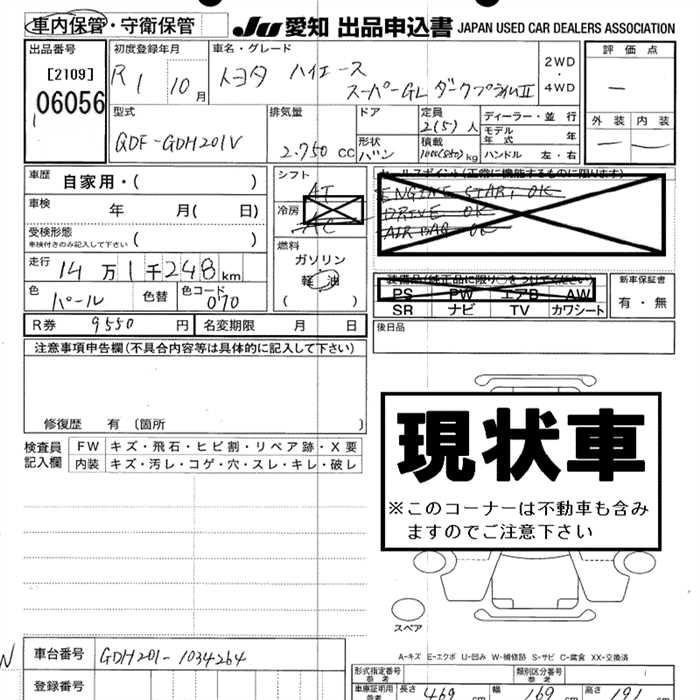 車内保管・守衛保管 JU 愛知 出品申込書 JAPAN USED CAR DEALERS ASSOCIATION
出品番号 初度登録年月 車名・グレード 評価点
[2109] R1 10月 トヨタ ハイエース 2WD・4WD
06056 スーパーGL ダークプライムⅡ —
型式 排気量 ドア 定員 ディーラー・並行 外装 内装
QDF-GDH201V 2.750 CC 形状 バン 2(5)人 モデル年式 年 — —
積載 kg ハンドル 左・右
車歴 自家用・( ) シフト AT セールスポイント(正常に機能するものに限ります)
車検 年 月(日) 冷房 AC ENGINE START OK
DRIVE OK
受検形態 ( ) AIR BAG OK
車検付きのみ記入して下さい
燃料
走行 14万1千248km ガソリン
軽油
装備品(純正品に限り○をつけてください) 新車保証書
色 パール 色替 色コード 070 PS PW エアB AW 有・無
SR ナビ TV カワシート
R券 9550円 名変期限 月 日 後日品
注意事項申告欄(不具合内容等は具体的に記入して下さい)
修復歴 有 (箇所 )
検査員記入欄 FW キズ・飛石・ヒビ割・リペア跡・X要
内装 キズ・汚レ・コゲ・穴・スレ・キレ・破レ
現状車
※このコーナーは不動車も含み
ますのでご注意下さい
スペア
A-キズ E-エクボ U-凹み W-補修跡 S-サビ C-腐食 XX-交換済
N 車台番号 GDH201-1034264
形式指定番号 参考 類別区分番号 参考
登録番号 車庫証明用 参考 長さ 469 cm 幅 169 cm 高さ 191 cm